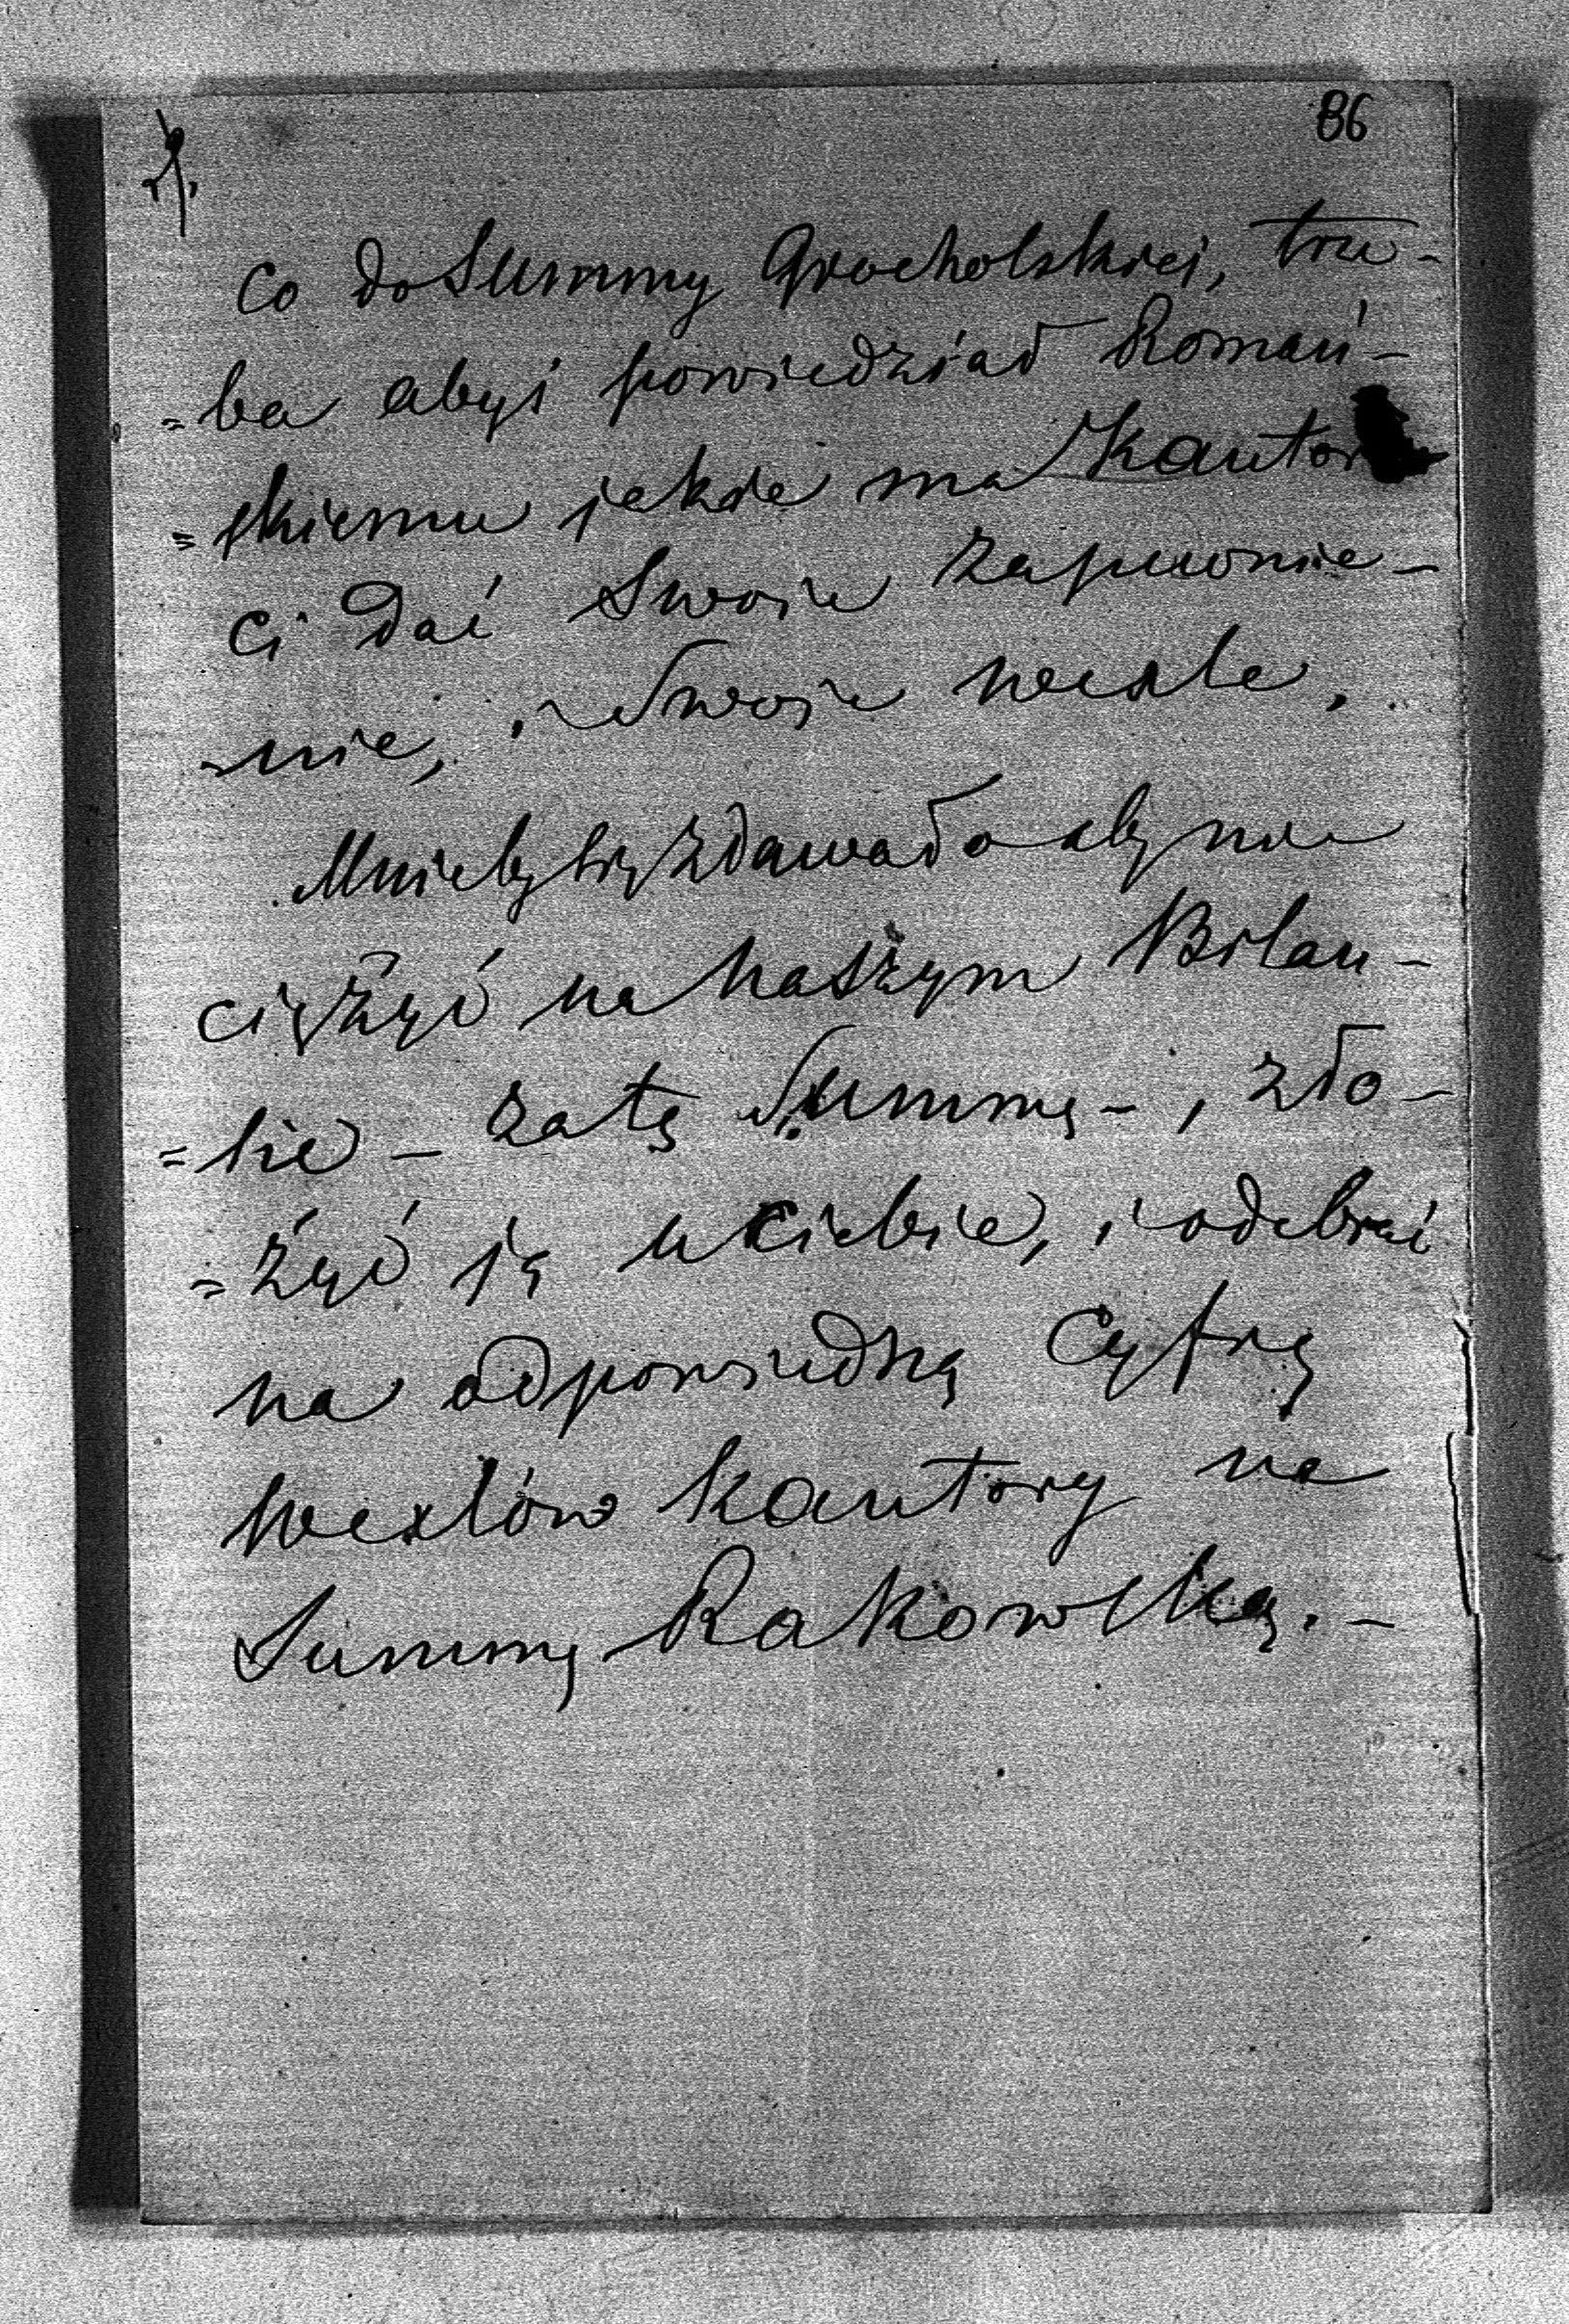 86
2).
Co do Summy Grocholskiej, trze-
=ba abyś powiedział Romań-
=skiemu jakie ma Kantor
Ci dać Swoje zapewnie-
-nie, i Swoje wexle.
Mnieby się zdawało aby nie
ciężyć na naszym Bilan-
=sie - za tę Summę -, zło-
=żyć ją u Ciebie, i odebrać
na odpowiednią Cyfrę
Wexlów Kantory na
Summę Rakowską. -